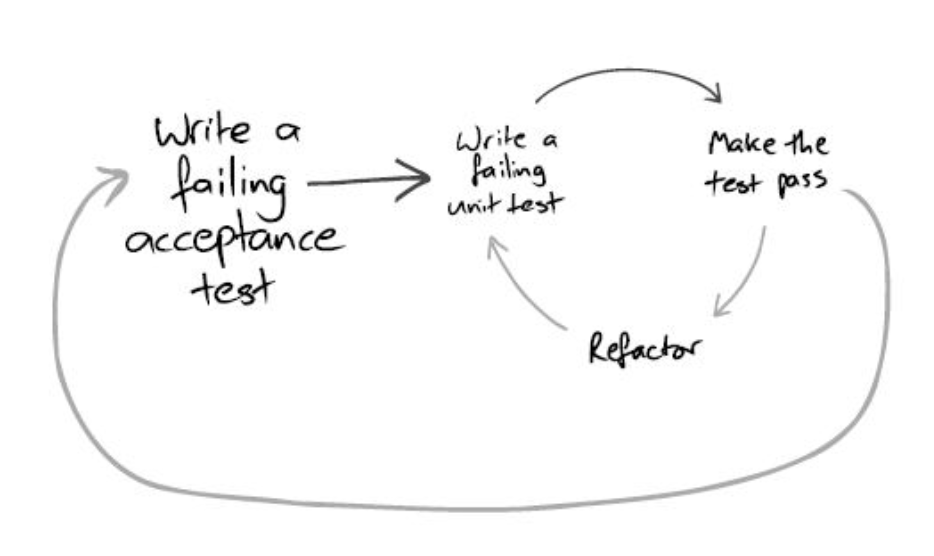 Write a
failing
acceptance
test
Write a
failing
unit test
Make the
test pass
Refactor